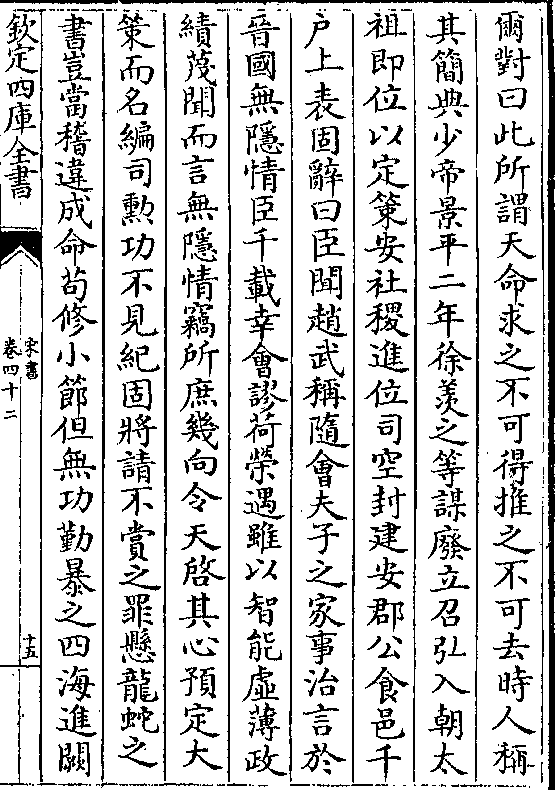 爾對曰此所謂天命求之不可得推之不可去時人稱
其簡典少帝景平二年徐羨之等謀廢立召弘入朝太
祖即位以定策安社稷進位司空封建安郡公食邑千
户上表固辭曰臣聞趙武稱隨會夫子之家事治言於
晉國無隱情臣千載幸會謬荷榮遇雖以智能虛薄政
績蔑聞而言無隱情竊所庶幾向令天啓其心預定大
策而名編司勲功不見紀固將請不賞之罪懸龍蛇之
書豈當稽違成命苟修小節但無功勤暴之四海進闕
欽定四庫全書
宋書
卷四十二
十五